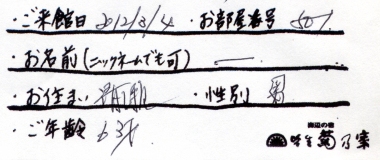 ・ご来館日 2012/3/4 ・お部屋番号 501
・お名前(ニックネームでも可) ―
・お住まい 静岡県 ・性別 男
・ご年齢 63才
海辺の宿
味の宿 菊乃家